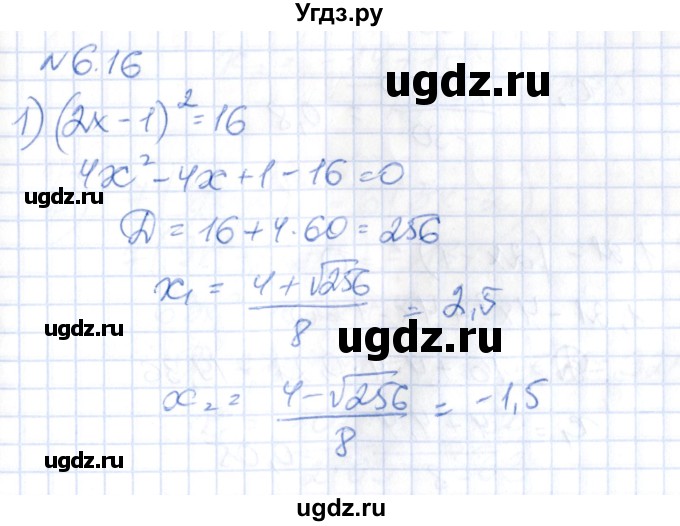 Угдз.ру
№6.16
ugdz.ru
1) (2x - 1)² = 16
4x² - 4x + 1 - 16 = 0
ugdz.ru
ugdz.ru
D = 16 + 4·60 = 256
x₁ = (4 + √256)/8 = 2,5
ugdz.ru
ugdz.ru
x₂ = (4 - √256)/8 = -1,5
ugdz.ru
ugdz.ru
ugdz.ru